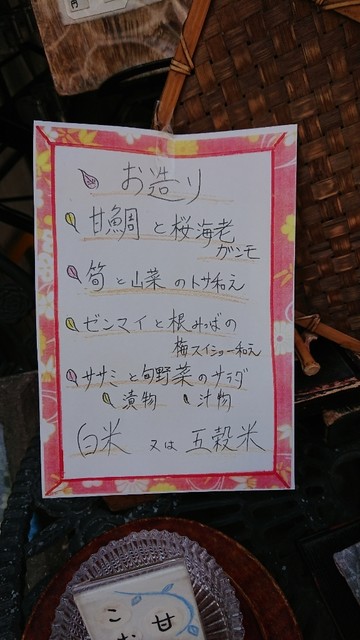 円
お造り
甘鯛と桜海老
ガンモ
筍と山菜のトサ和え
ゼンマイと根みつばの
梅スイショー和え
ササミと旬野菜のサラダ
漬物 汁物
白米 又は 五穀米
甘
こ